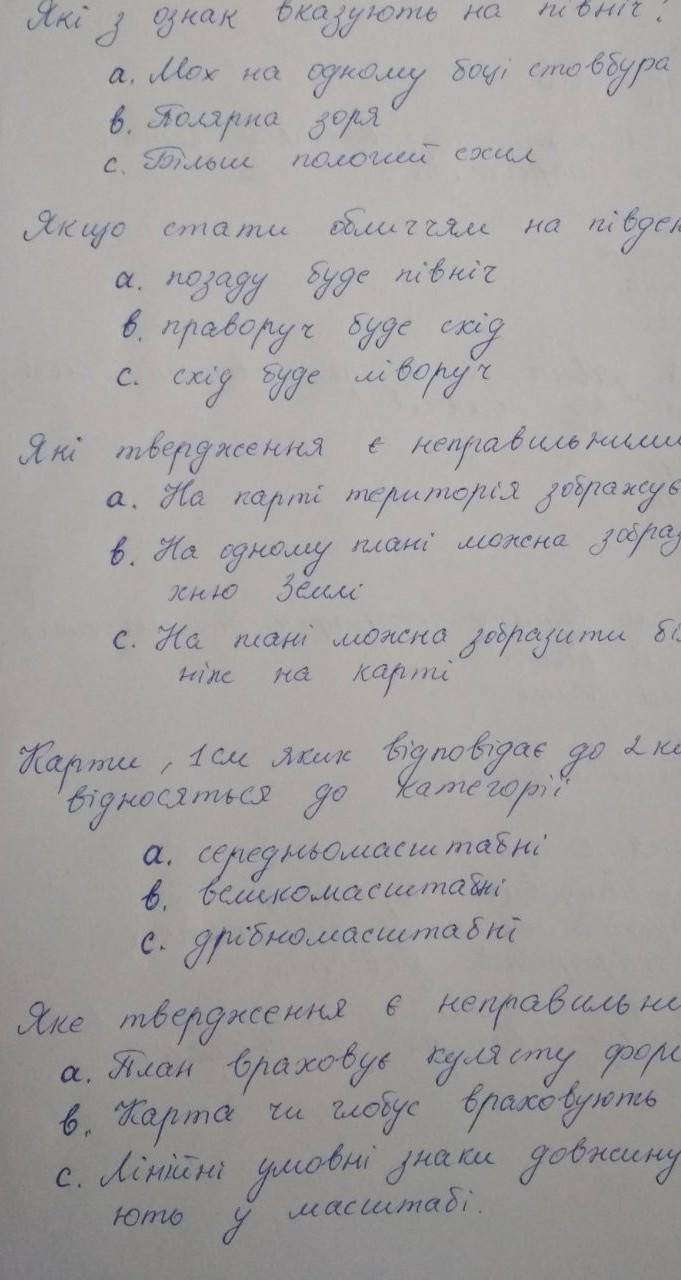 Які з ознак вказують на північ?
a. Мох на одному боці стовбура
b. Полярна зоря
c. Більш пологий схил
Якщо стати обличчям на півден
a. позаду буде північ
b. праворуч буде схід
c. схід буде ліворуч
Які твердження є неправильними
a. На карті територія зображує
b. На одному плані можна зобраз
хню Землі
c. На плані можна зобразити бі
ніж на карті
Карти, 1см яких відповідає до 2 к
відносяться до категорії
a. середньомасштабні
b. великомасштабні
c. дрібномасштабні
Яке твердження є неправильни
a. План враховує кулясту фор
b. Карта чи глобус враховують
c. Лінійні умовні знаки довжину
ють у масштабі.